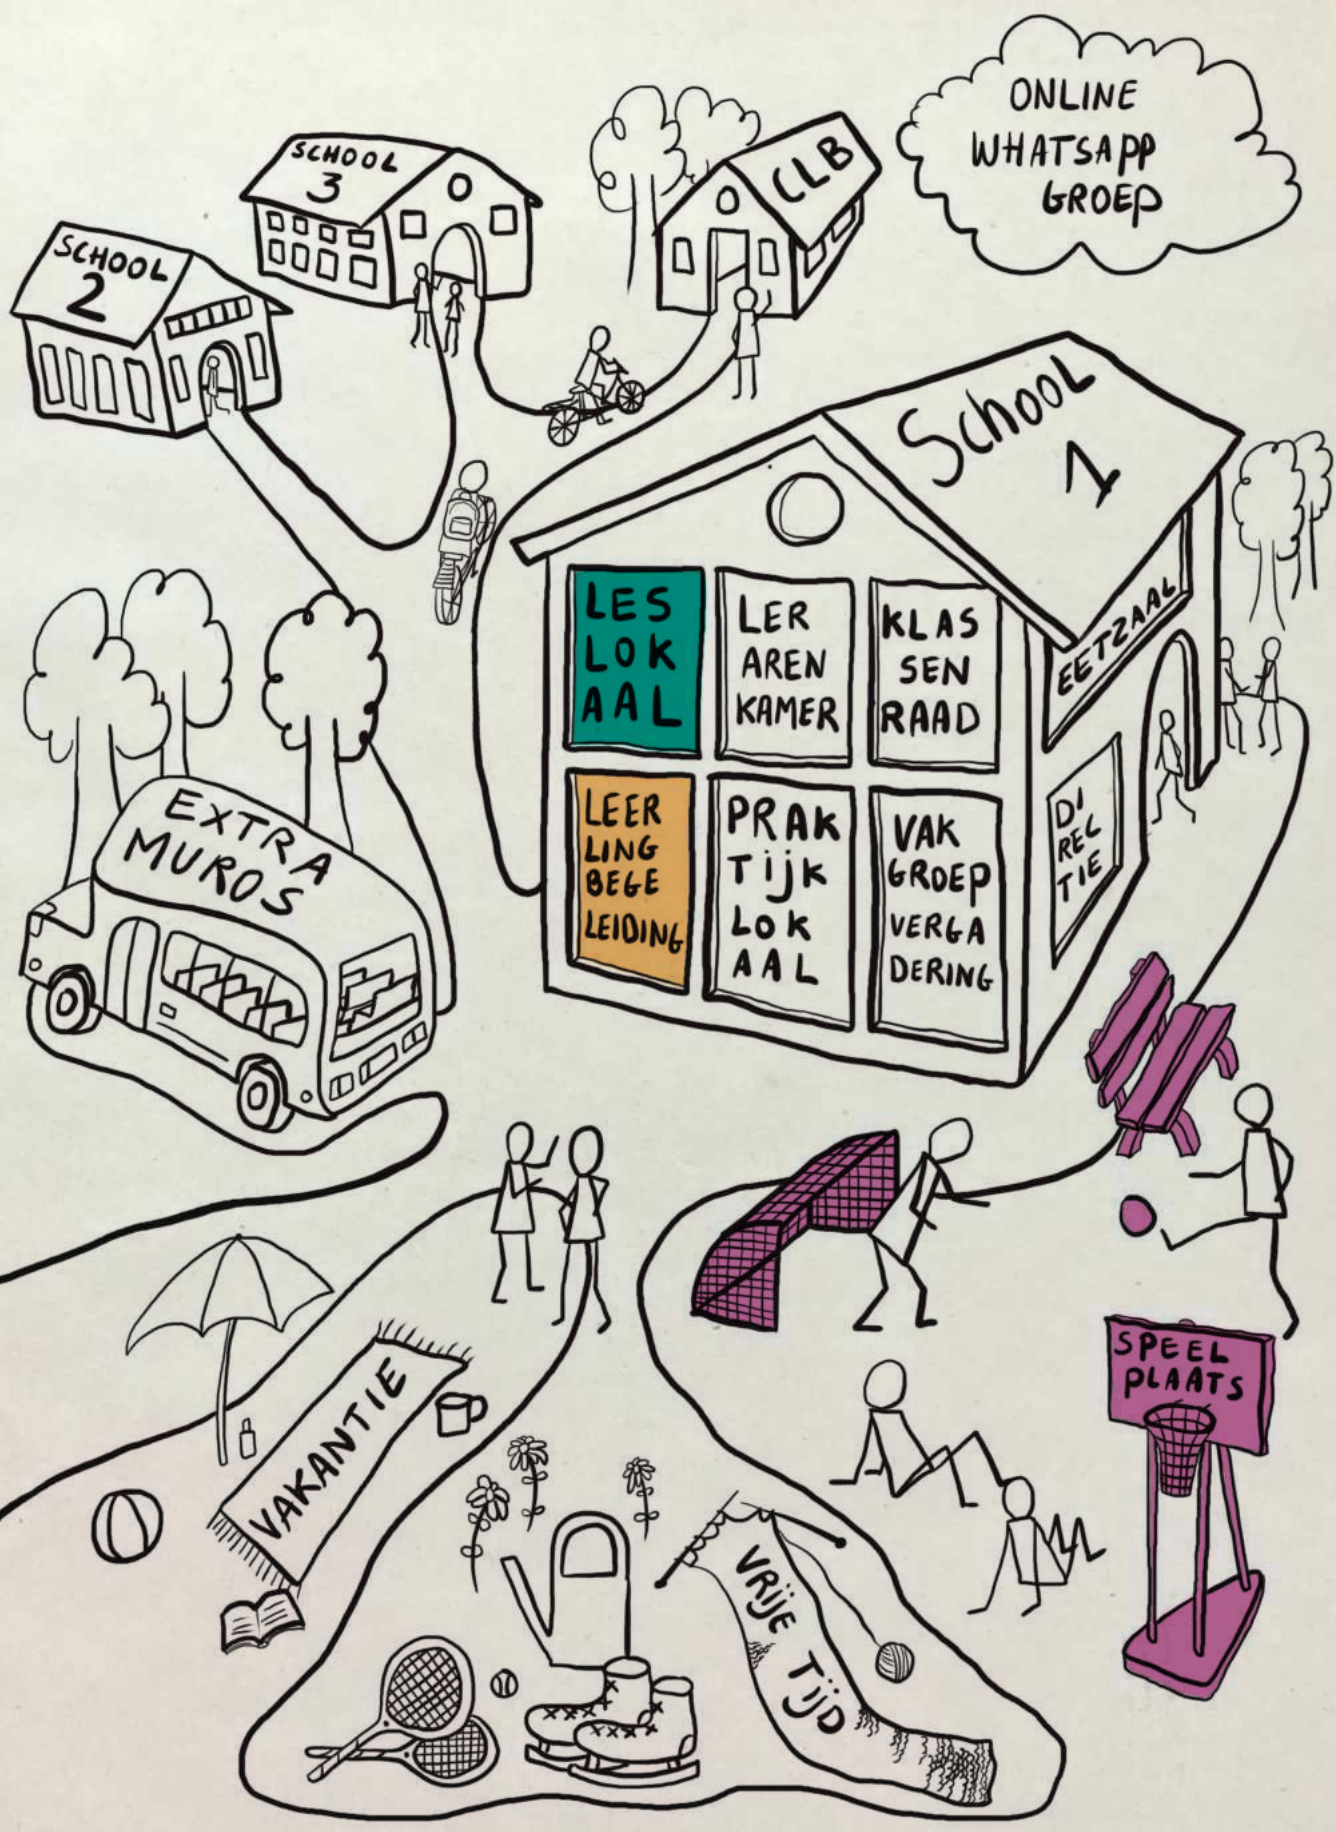 ONLINE
WHATSAPP
GROEP
SCHOOL
3
CLB
SCHOOL
2
School
1
LES
LOK
AAL
LER
AREN
KAMER
KLAS
SEN
RAAD
EETZAAL
LEER
LING
BEGE
LEIDING
PRAK
TIJK
LOK
AAL
VAK
GROEP
VERGA
DERING
DI
REC
TIE
EXTRA
MUROS
SPEEL
PLAATS
VAKANTIE
VRIJE TIJD